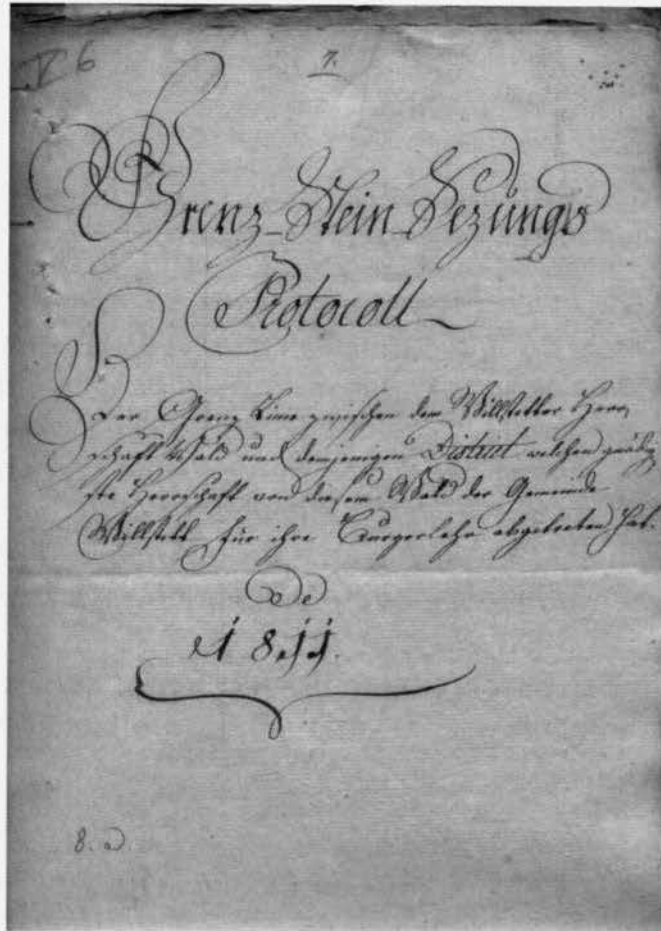 V 6
7.
Grenz-Stein-Sezungs
Protocoll
Der Grenz Linie zwischen dem Willstetter Herr,
schaft Wald und demjenigen District welchen gnädig
ste Herrschaft von diesem Wald der Gemeinde
Willstett für ihre Burgerlohe abgetreten hat.
De
1811.
8. a.